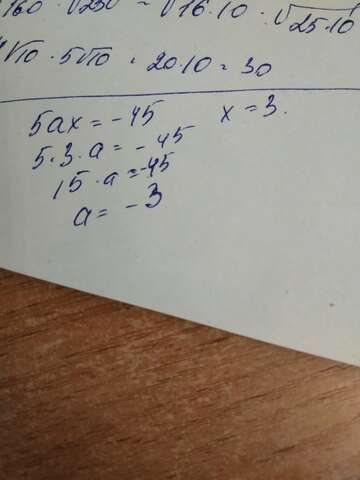 160 · √250 = √16·10 · √25·10
√10 · 5√10 = 20·10 = 30
5ax = -45 x = 3.
5·3·a = -45
15·a = -45
a = -3